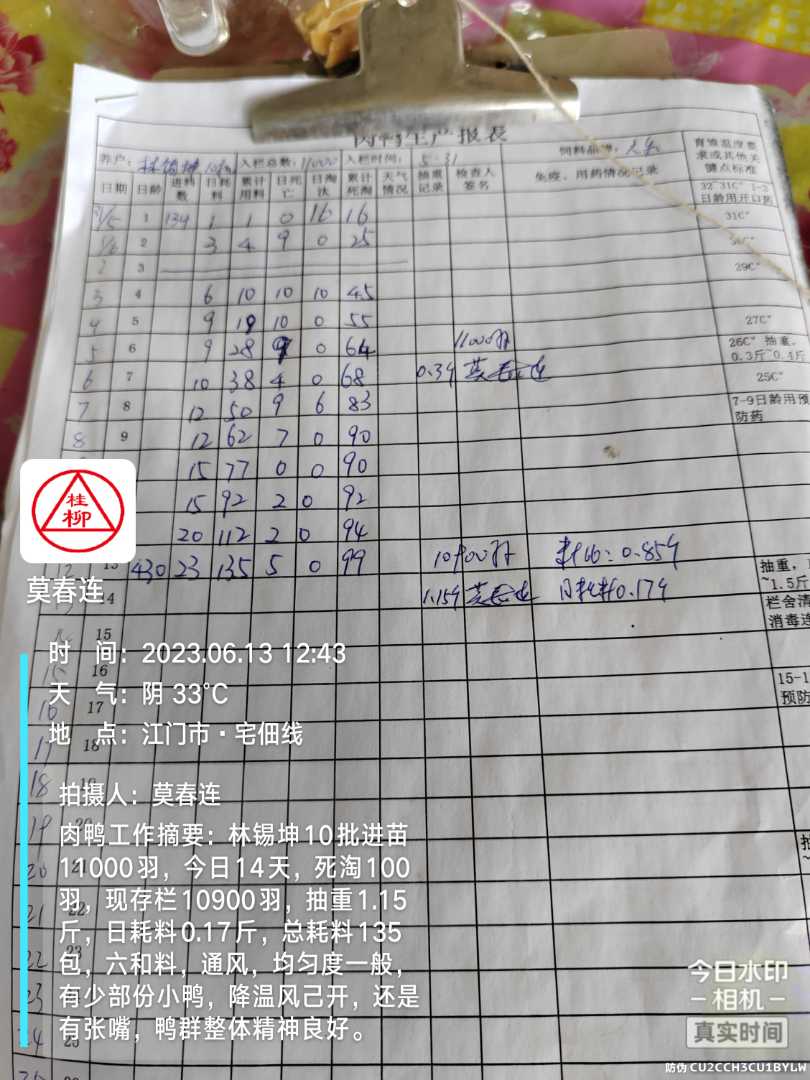 肉鸭生产报表
养户: 林锡坤10批 入栏总数: 11000 入栏时间: 5.31 饲料品牌: 六和 育雏温度要求或其他关键点标准
日期 日龄 进料数 日耗料 累计用料 日死亡 日淘汰 累计死淘 天气情况 抽重记录 检查人签名 免疫、用药情况记录
32°31C° 1-3日龄用开口药
31/5 1 134 1 1 0 16 16 31C°
1/6 2 3 4 9 0 25
2 3 29C°
3 4 6 10 10 10 45
4 5 9 19 10 0 55 27C°
5 6 9 28 9 0 64 11000羽 26C° 抽重,0.3斤~0.4斤
6 7 10 38 4 0 68 0.39 莫春连 25C°
7 8 12 50 9 6 83 7-9日龄用预防药
8 9 12 62 7 0 90
15 77 0 0 90
15 92 2 0 92
20 112 2 0 94
12 13 430 23 135 5 0 99 10900羽 料比: 0.859 抽重,
14 1.159 莫春连 日耗料0.179 ~1.5斤
栏舍清
消毒连
15
16 15-1
16 17 预防
17 18
18 19
19 20
20 21
21 22
22 23
23
24 25
桂柳
莫春连
时 间: 2023.06.13 12:43
天 气: 阴 33℃
地 点: 江门市·宅佃线
拍摄人: 莫春连
肉鸭工作摘要: 林锡坤10批进苗
11000羽，今日14天，死淘100
羽，现存栏10900羽，抽重1.15
斤，日耗料0.17斤，总耗料135
包，六和料，通风，均匀度一般，
有少部份小鸭，降温风己开，还是
有张嘴，鸭群整体精神良好。
今日水印
相机
真实时间
防伪 CU2CCH3CU1BYLW